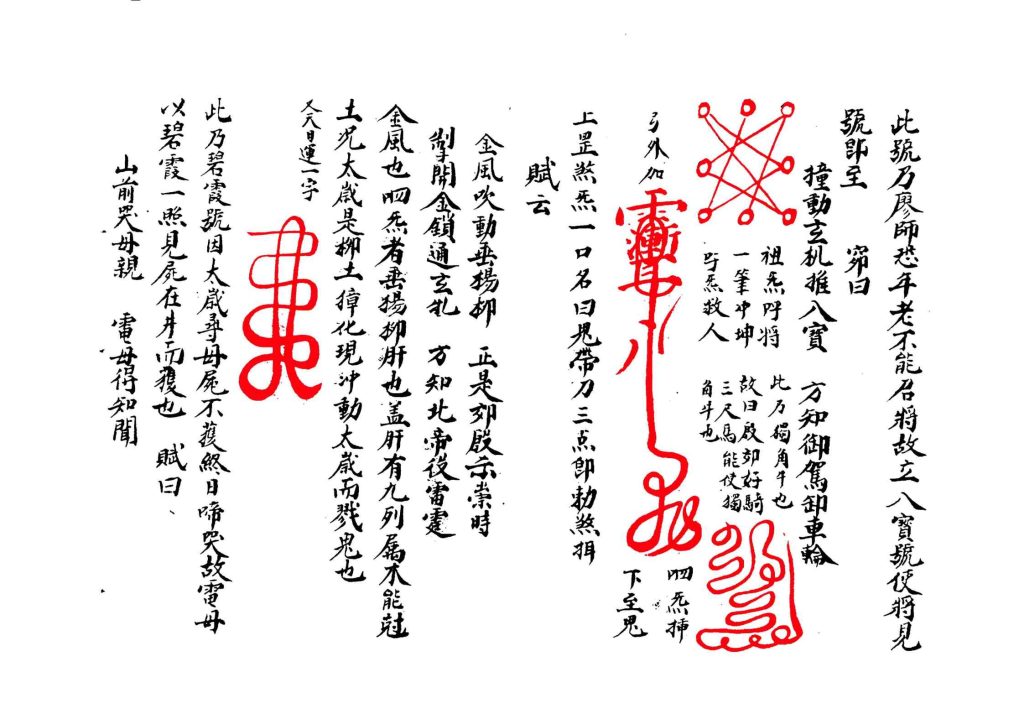 此號乃廖師愁年老不能召將故立八寶號使將見
號即至 節曰
撞動玄机推八寶 方知御駕卸車輪
祖炁呼將
一筆冲坤
吁炁救人
此乃獨角牛也
故曰殷郊好騎
三尺馬能使獨
角牛也
弓外加
呬炁揷
下至鬼
上罡煞炁一口名曰鬼帶刀三点即勅煞揖
賦云
金風吹動垂揚柳 正是郊殷示祟時
掣開金鎖通玄札 方知北帝役雷霆
金風也呬炁者垂揚柳肝也盖肝有九列屬木能尅
土况太歲是柳土獐化現冲動太歲而戮鬼也
日運一字
此乃碧霞號因太歲尋母屍不獲終日啼哭故電母
以碧霞一照見屍在井而獲也 賦曰
山前哭母親 電母得知聞